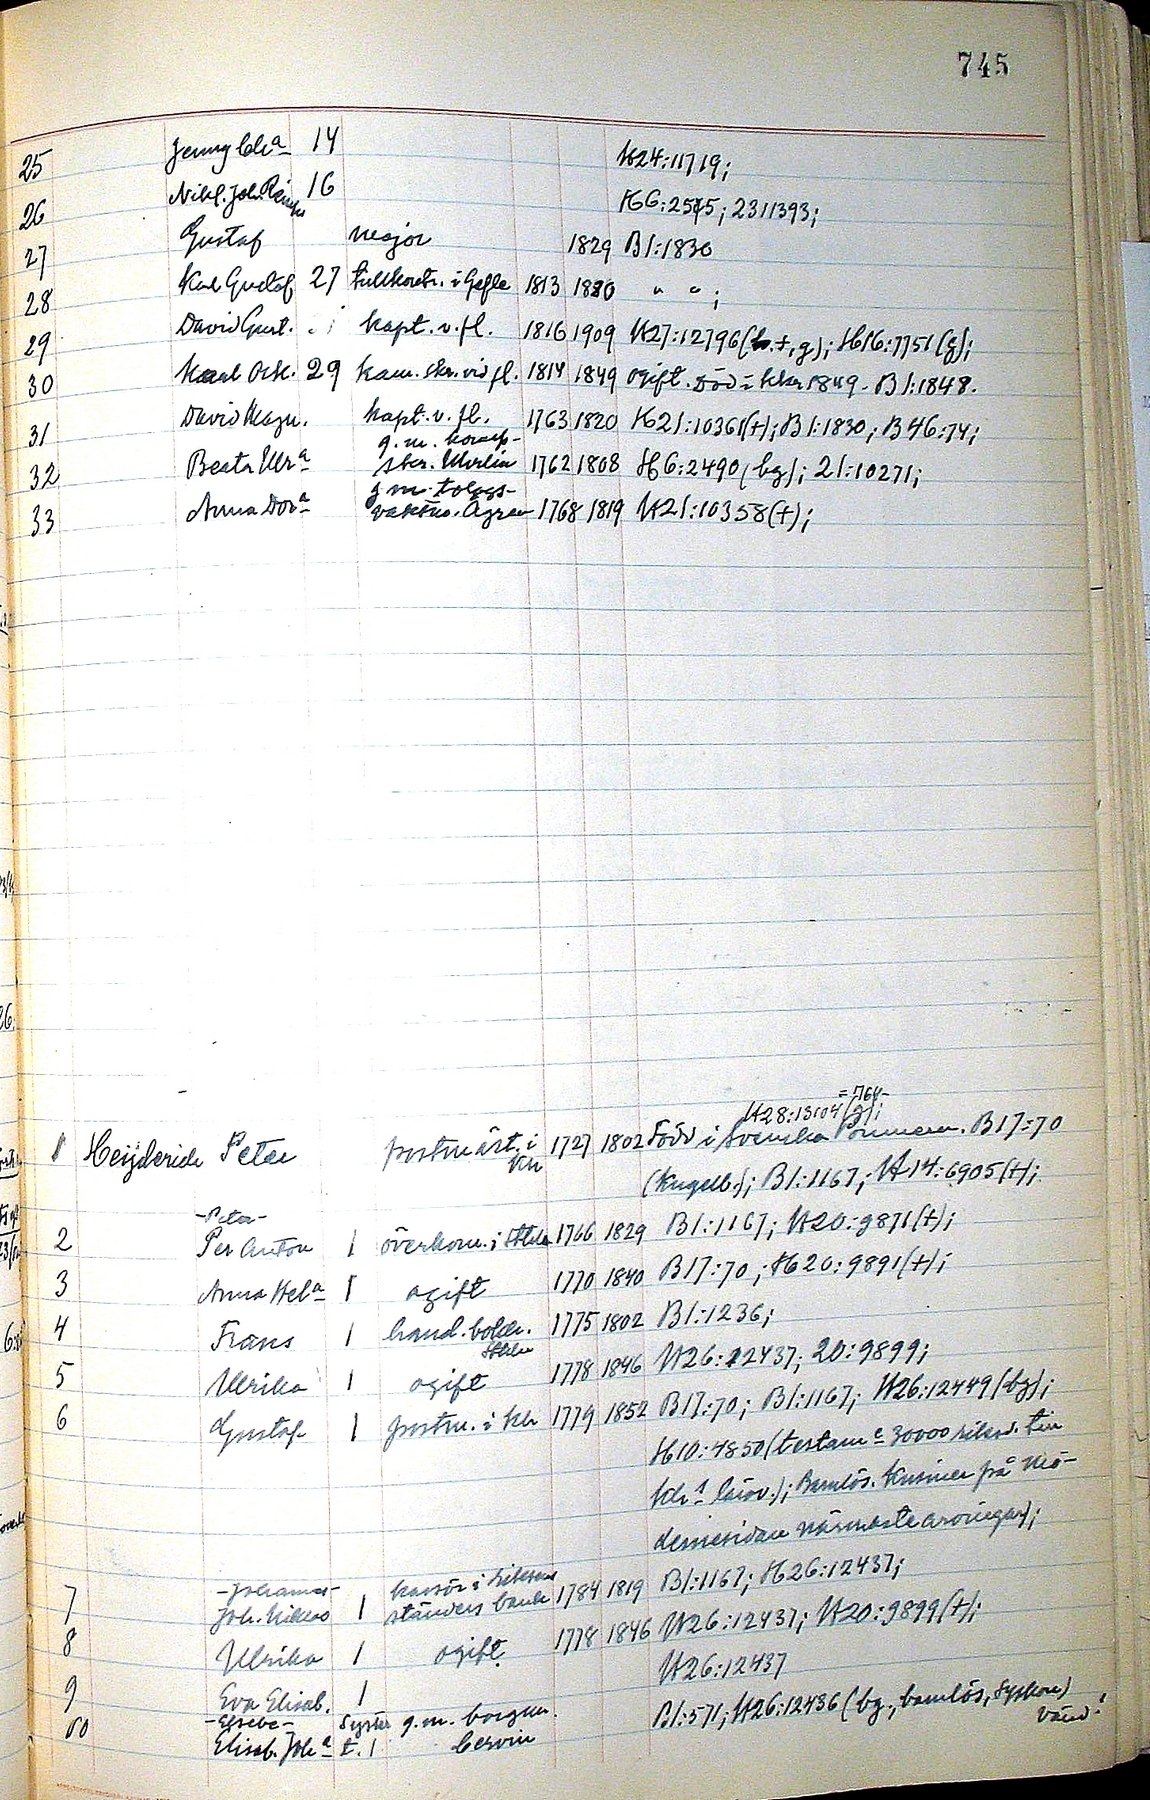 745
25 Jenny Ch:a 14 K24:11719;
26 Nikl. Joh. 16 K6:2545; 2311393;
27 Gustaf major 1829 B1:1830
28 Karl Gustaf 27 tullkontr. i Gefle 1813 1880 " " ;
29 David Gust. kapt. v. fl. 1816 1909 K27:12796 (+, g); K16:7751 (g);
30 Karl Osk. 29 kam. skr. vid fl. 1814 1849 ogift. Död i Kkr 1849. B1:1848.
31 David Magn. kapt. v. fl. 1763 1820 K21:10361(+); B1:1830; B46:74;
g. m.
32 Beata Ulr:a skr. 1762 1808 K6:2490 (bg); 21:10271;
g m.
33 Anna Dor:a Ågren 1768 1819 K21:10358(+);
= 1764-
K28:13104 (g);
1 Heijderich Peter postmäst. i 1727 1802 Född i Svenska Pommern. B17:70
Kkr
(Kugelb.); B1:1167; K14:6905(+);
-Peter-
2 Per Anton 1 överkom. i Sthlm 1766 1829 B1:1167; K20:9871(+);
3 Anna Hel:a 1 ogift 1770 1840 B17:70; K20:9891(+);
4 Frans 1 hand. bokh. 1775 1802 B1:1236;
Sthlm
5 Ulrika 1 ogift 1778 1846 K26:12437; 20:9899;
6 Gustaf 1 postm. i Kkr 1779 1852 B17:70; B1:1167; K26:12449 (bg);
K10:4850 (testam:e 30000 riksd. till
Barnlös. Kusiner på mö-
dernesidan närmaste arvingar);
-Johannes- kassör i riksens
7 Joh. Niklas 1 ständers bank 1784 1819 B1:1167; K26:12437;
8 Ulrika 1 ogift. 1778 1846 K26:12437; K20:9899(+);
9 Eva Elisab. 1 K26:12437
-Elsebe- Syster g. m. borgm.
10 Elisab. Joh:a t. 1 B1:571; K26:12436 (bg., barnlös, Syskon)